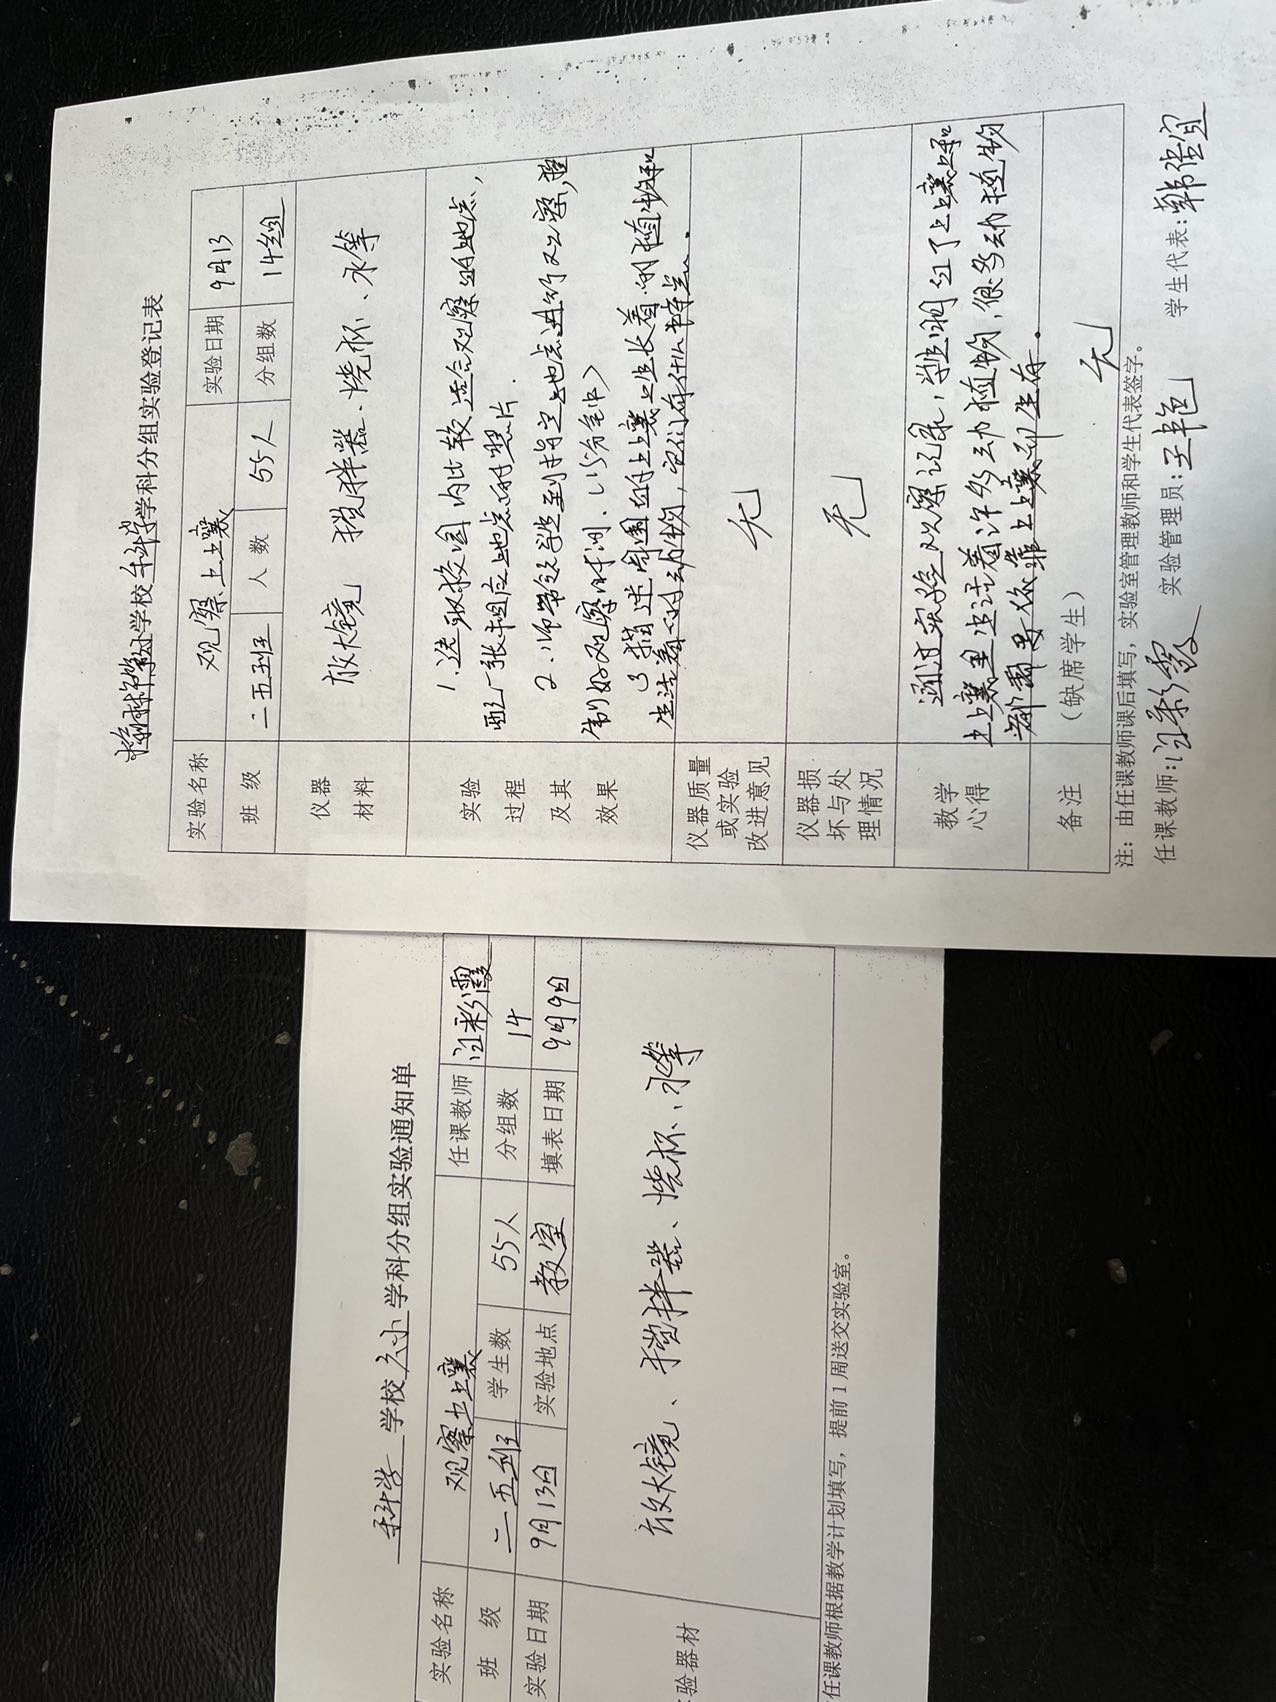 学校科学学科分组实验登记表
实验名称 观察土壤 实验日期 9月13
班级 二五班 人数 55人 分组数 14组
仪器材料 放大镜 搅拌器、烧杯、水等
实验过程及其效果
1.选取校园内比较适合观察的地点,
配一张相应地点的照片.
2.师带领学生到指定地点进行观察,
制好观察时间.(15分钟)
3 描述周围的土壤上生长着的植物和
生活着的动物,它们有什么特点.
仪器质量或实验改进意见 无
仪器损坏与处理情况 无
教学心得
通过实验观察记录,学生明白了土壤上和
土壤里生活着许多动植物,很多动植物
都需要依靠土壤而生存.
备注 (缺席学生) 无
注:由任课教师课后填写,实验室管理教师和学生代表签字。
任课教师:汪彩霞 实验管理员:王艳 学生代表:韩佳宜
科学 学校 学科分组实验通知单
实验名称 观察土壤 任课教师 汪彩霞
班级 二五班 学生数 55人 分组数 14
实验日期 9月13日 实验地点 教室 填表日期 9月9日
验器材 放大镜、搅拌器、烧杯、水等
任课教师根据教学计划填写,提前1周送交实验室。